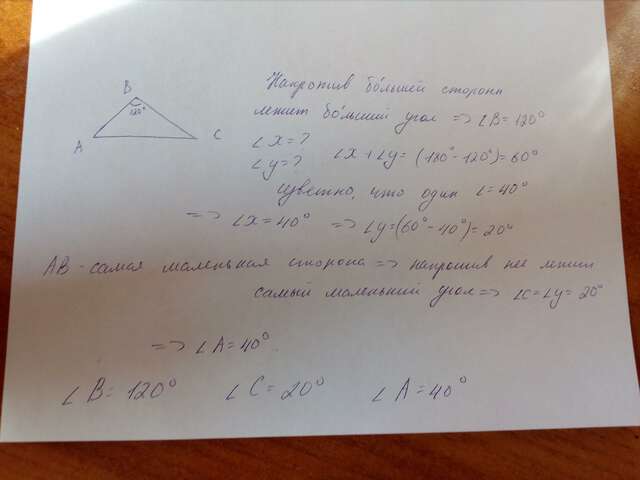 B
120°
A
C
Напротив бо́льшей стороны
лежит бо́льший угол => ∠B = 120°
∠x = ?
∠y = ?
∠x + ∠y = (180° - 120°) = 60°
известно, что один ∠ = 40°
=> ∠x = 40° => ∠y = (60° - 40°) = 20°
AB - самая маленькая сторона => напротив нее лежит
самый маленький угол => ∠C = ∠y = 20°
=> ∠A = 40°
∠B = 120° ∠C = 20° ∠A = 40°